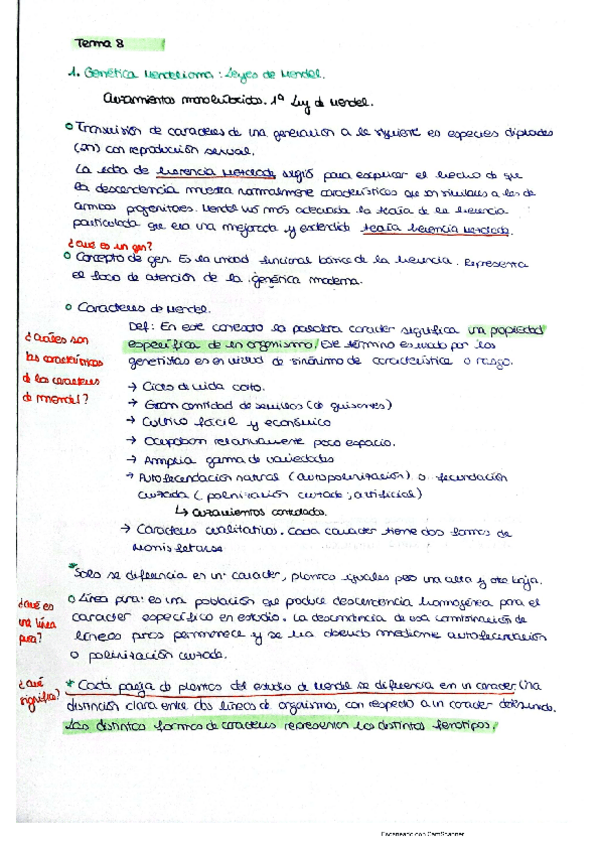 Tema 8
1. Genética Mendeliana: Leyes de Mendel.
Cruzamientos monohíbridos. 1ª Ley de Mendel.
Transmisión de caracteres de una generación a la siguiente en especies diploides
(2n) con reproducción sexual.
La idea de herencia mezclada surgió para explicar el hecho de que
la descendencia muestra normalmente características que son similares a las de
ambos progenitores. Mendel más adecuada la teoría de la herencia
particulada que era una mejorada y extendida teoría herencia mezclada.
¿Qué es un gen?
Concepto de gen. Es la unidad funcional básica de la herencia. Representa
el foco de atención de la genética moderna.
Caracteres de Mendel.
¿Cuáles son
las características
de los caracteres
de Mendel?
Def: En este contexto la palabra caracter significa una propiedad
específica de un organismo/ Este término es usado por los
genetistas es en virtud de sinónimo de característica o rasgo.
→ Ciclos de vida corto.
→ Gran cantidad de semillas (de guisantes)
→ Cultivo fácil y económico
→ Ocupaban relativamente poco espacio.
→ Amplia gama de variedades
→ Autofecundación natural (autopolinización) o fecundación
cruzada (polinización cruzada; artificial)
↳ cruzamientos controlados.
→ Caracteres cualitativos. Cada caracter tiene dos formas de
manifestarse
*Solo se diferencia en un caracter, plantas iguales pero una alta y otra baja.
¿Qué es
una línea
pura?
Línea pura: es una población que produce descendencia homogénea para el
caracter específico en estudio. La descendencia de esa combinación de
líneas puras permanece y se ha obtenido mediante autofecundación
o polinización cruzada.
¿Qué
significa?
* Cada pareja de plantas del estudio de Mendel se diferencia en un caracter. Una
distinción clara entre dos líneas de organismos, con respecto a un caracter determinado.
Las distintas formas de caracteres representan los distintos fenotipos.
Escaneado con CamScanner